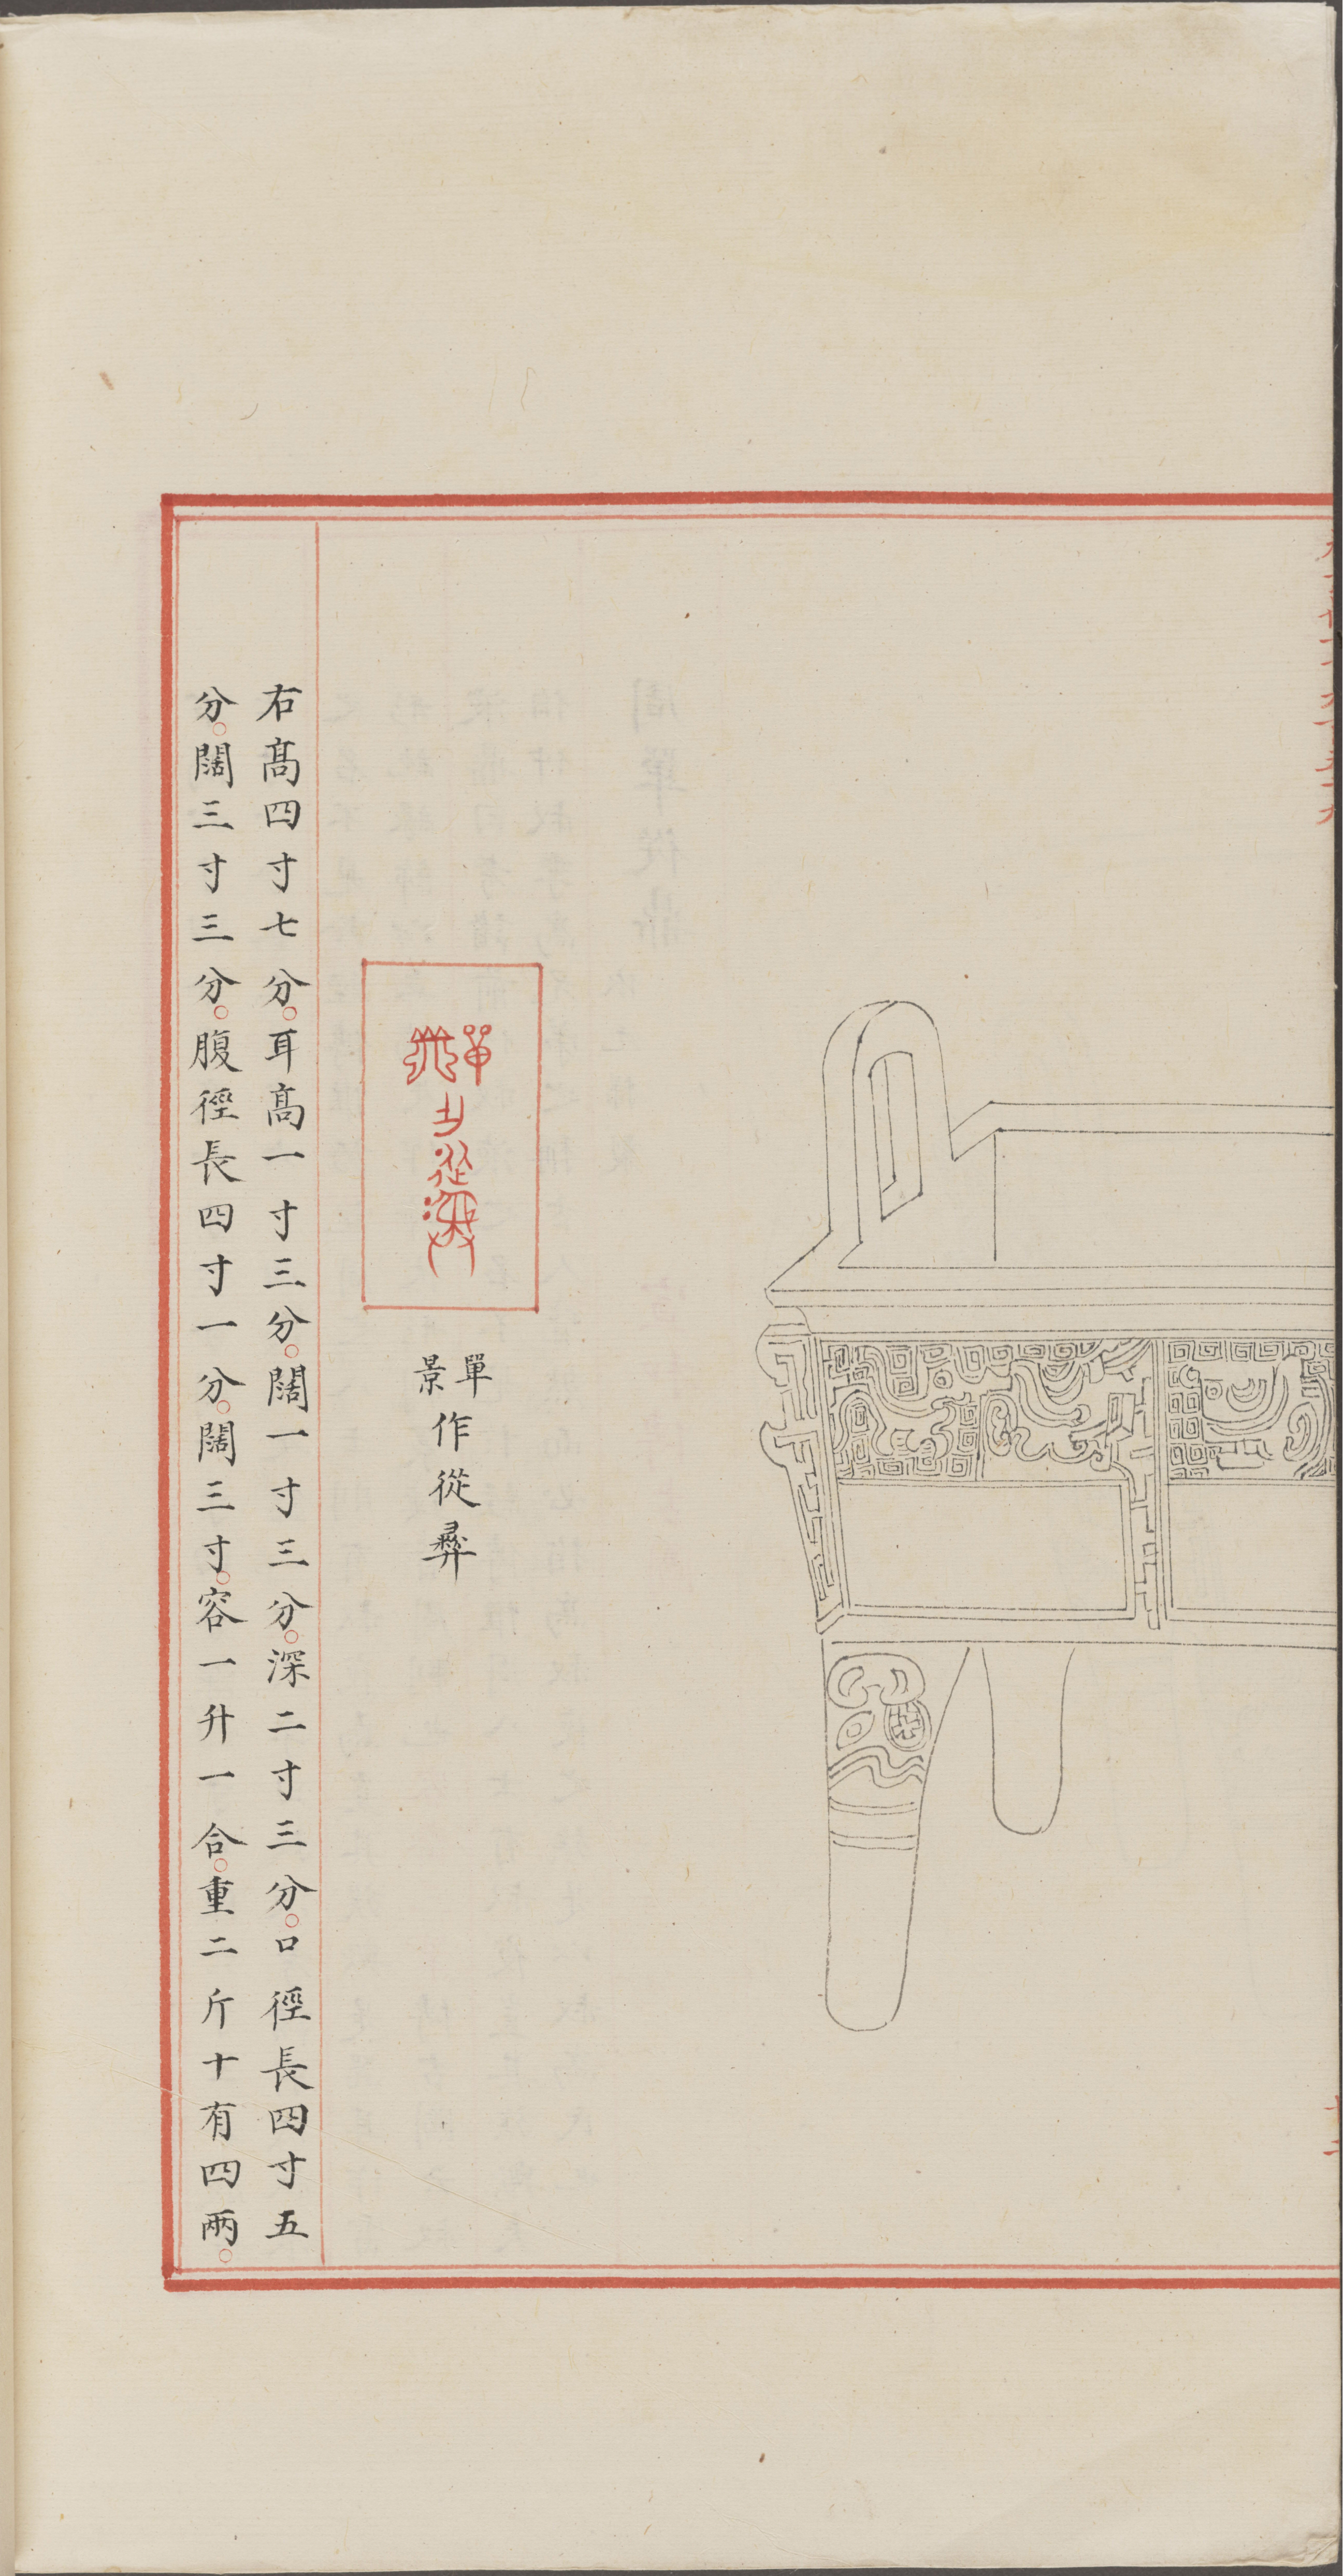 單景作從彝
右高四寸七分。耳高一寸三分。闊一寸三分。深二寸三分。口徑長四寸五
分。闊三寸三分。腹徑長四寸一分。闊三寸。容一升一合。重二斤十有四兩。